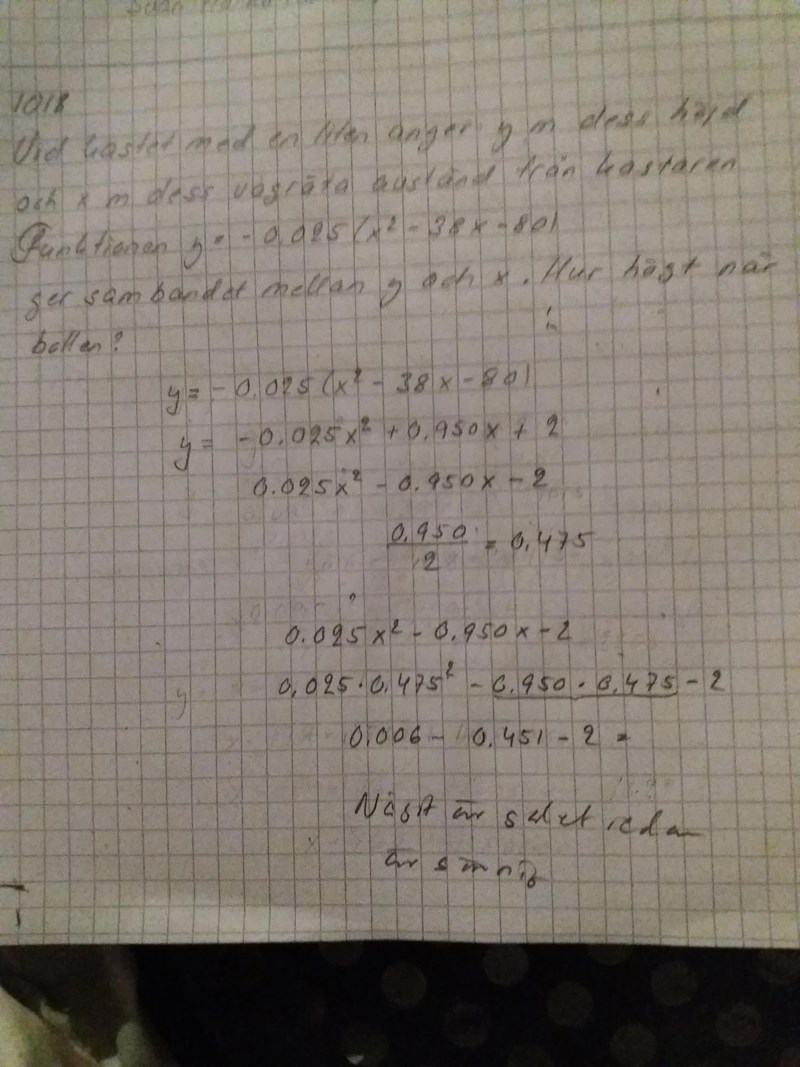 1018
Vid kastet med en liten anger y m dess höjd
och x m dess vågräta avstånd från kastaren
Funktionen y = -0.025(x² - 38x - 80)
ger sambandet mellan y och x. Hur högt når
bollen?
y = -0.025(x² - 38x - 80)
y = -0.025x² + 0.950x + 2
0.025x² - 0.950x - 2
0.950 / 2 = 0,475
0.025x² - 0.950x - 2
0,025 · 0,475² - 0.950 · 0,475 - 2
0.006 - 0,451 - 2 =
är